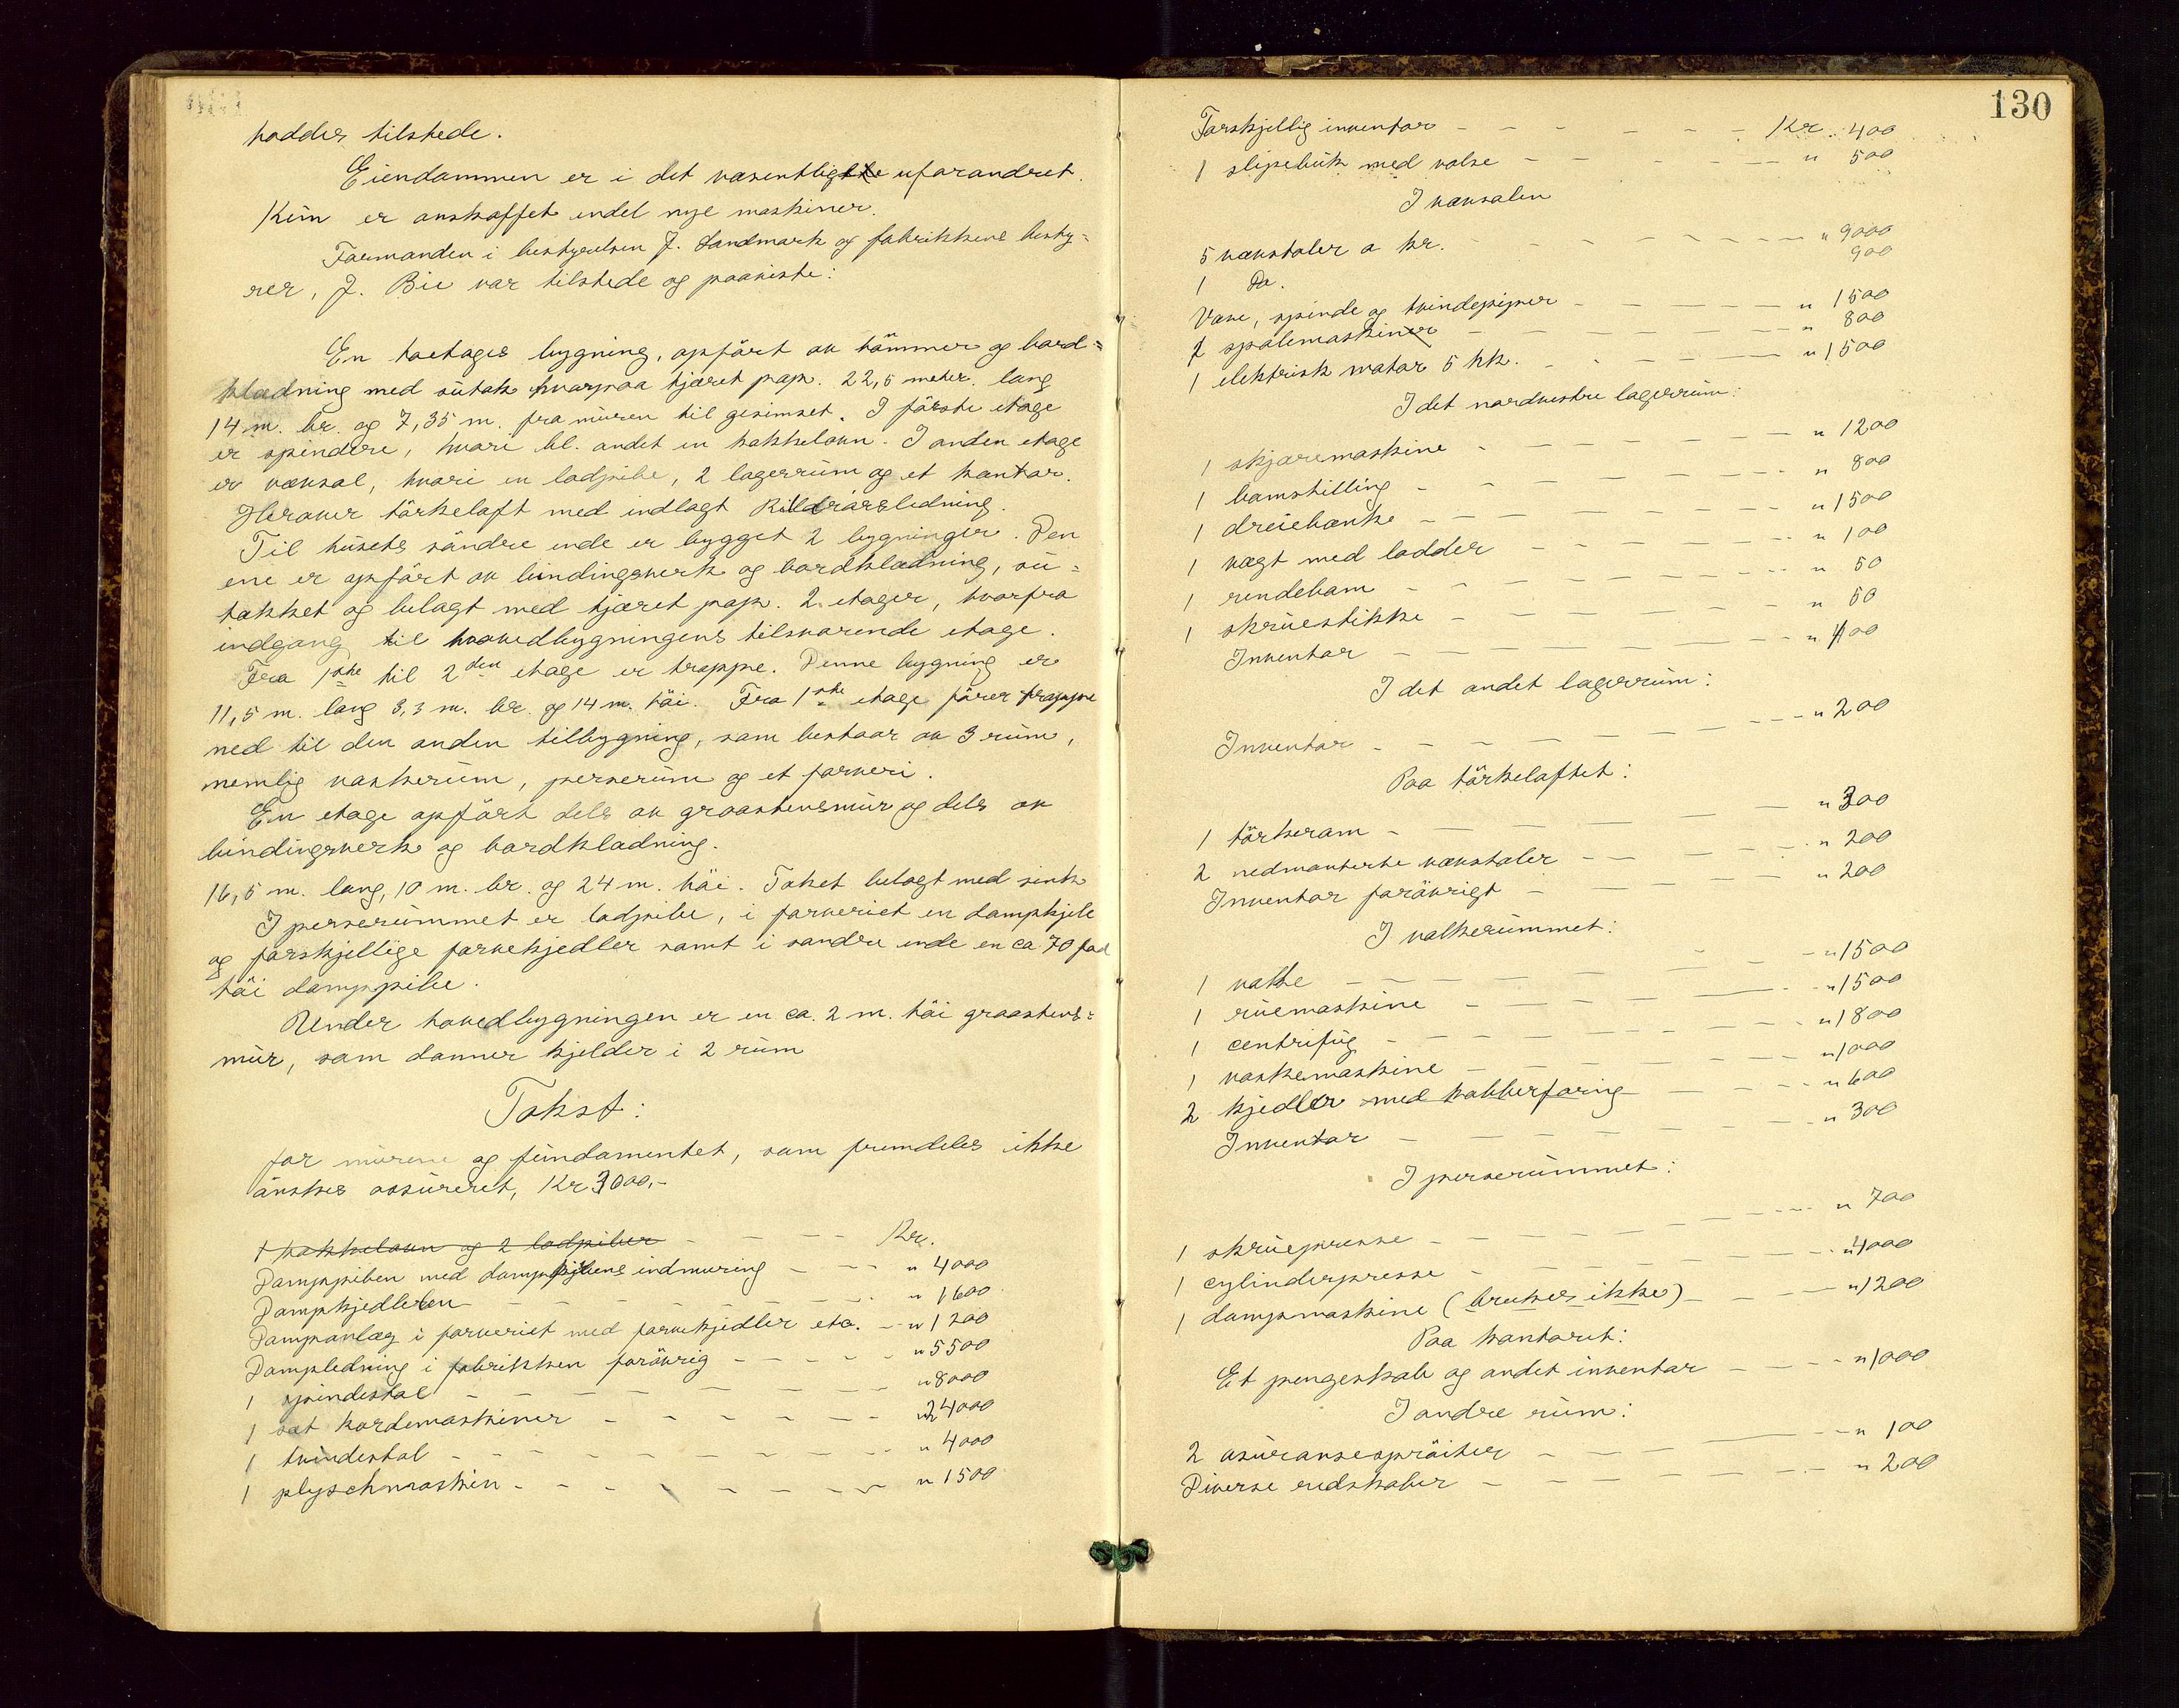 holdtes tilstede.
Eiendommen er i det væsentlige uforandret.
Kun er anskaffet endel nye maskiner.
Formanden i bestyrelsen J. Landmark og fabrikkens besty=
rer, J. Bie var tilstede og paaviste:
En toetages bygning, opført av tømmer og bord=
klædning med sutak hvorpaa tjæret pap. 22,5 meter lang
14 m. br. og 7,35 m. fra muren til gesimset. I første etage
er spinderi, hvori bl. andet en kakkelovn. I anden etage
er vævsal, hvori en lodpibe, 2 lagerrum og et kontor.
Herover tørkeloft med indlagt rørledning.
Til husets søndre ende er bygget 2 bygninger. Den
ene er opført av bindingsverk og bordklædning, su=
takket og belagt med tjæret pap. 2 etager, hvorfra
indgang til hovedbygningens tilsvarende etage.
Fra 1ste til 2den etage er trappe. Denne bygning er
11,5 m. lang 3,3 m. br. og 14 m. høi. Fra 1ste etage fører trappe
ned til den anden tilbygning, som bestaar av 3 rum,
nemlig vaskerum, perserum og et farveri.
En etage opført dels av graastensmur og dels av
bindingsverk og bordklædning.
16,5 m. lang, 10 m. br. og 24 m. høi. Taket belagt med sink
I perserummet er lodpibe, i farveriet en dampkjele
og forskjellige farvekjedler samt i søndre ende en ca 70 fod
høi damppibe.
Under hovedbygningen er en ca. 2 m. høi graastens=
mur, som danner kjelder i 2 rum
Takst:
for murene og fundamentet, som fremdeles ikke
ønskes assureret, Kr 3000,-
1 kakkelovn og 2 lodpiber - - - - Kr.
Damppiben med damppibens indmuring - - - " 4000
Dampkjedlelen - - - " 1600
Dampanlæg i farveriet med farvekjedler etc. - " 1200
Dampledning i fabrikken forøvrig - - - - " 5500
1 spindestol - - - - " 8000
1 sæt kardemaskiner - - - - " 24000
1 tvindestol - - - - " 4000
1 plyschmaskin - - - - " 1500
130
Forskjellig inventar - - - - Kr. 400
1 slipebuk med valse - - - - " 500
I vævsalen
5 vævstoler a kr. - - - - " 9000
1 Do. 900
Væve, spinde og tvindepiper - - - - " 1500
1 spolemaskine - - - - " 800
1 elektrisk motor 5 hk. - - - - " 1500
I det nordvestre lagerrum:
1 skjæremaskine - - - - " 1200
1 bomstilling - - - - " 800
1 dreiebænk - - - - " 1500
1 vægt med lodder - - - - " 100
1 rendebom - - - - " 50
1 skruestikke - - - - " 50
Inventar - - - - " 400
I det andet lagerrum:
Inventar - - - - " 200
Paa tørkeloftet:
1 tørkeram - - - - " 300
2 nedmonterte vævstoler - - - - " 200
Inventar forøvrigt - - - - " 200
I valkerummet:
1 valke - - - - " 1500
1 ruemaskine - - - - " 1500
1 centrifug - - - - " 1800
1 vaskemaskine - - - - " 1000
2 kjedler med kobberforing - - - - " 600
Inventar - - - - " 300
I perserummet:
1 skruepresse - - - - " 700
1 cylinderpresse - - - - " 4000
1 dampmaskine (brukes ikke) - - - - " 1200
Paa kontoret:
Et pengeskab og andet inventar - - - - " 1000
I andre rum:
2 asuransesprøiter - - - - " 100
Diverse redskaber - - - - " 200